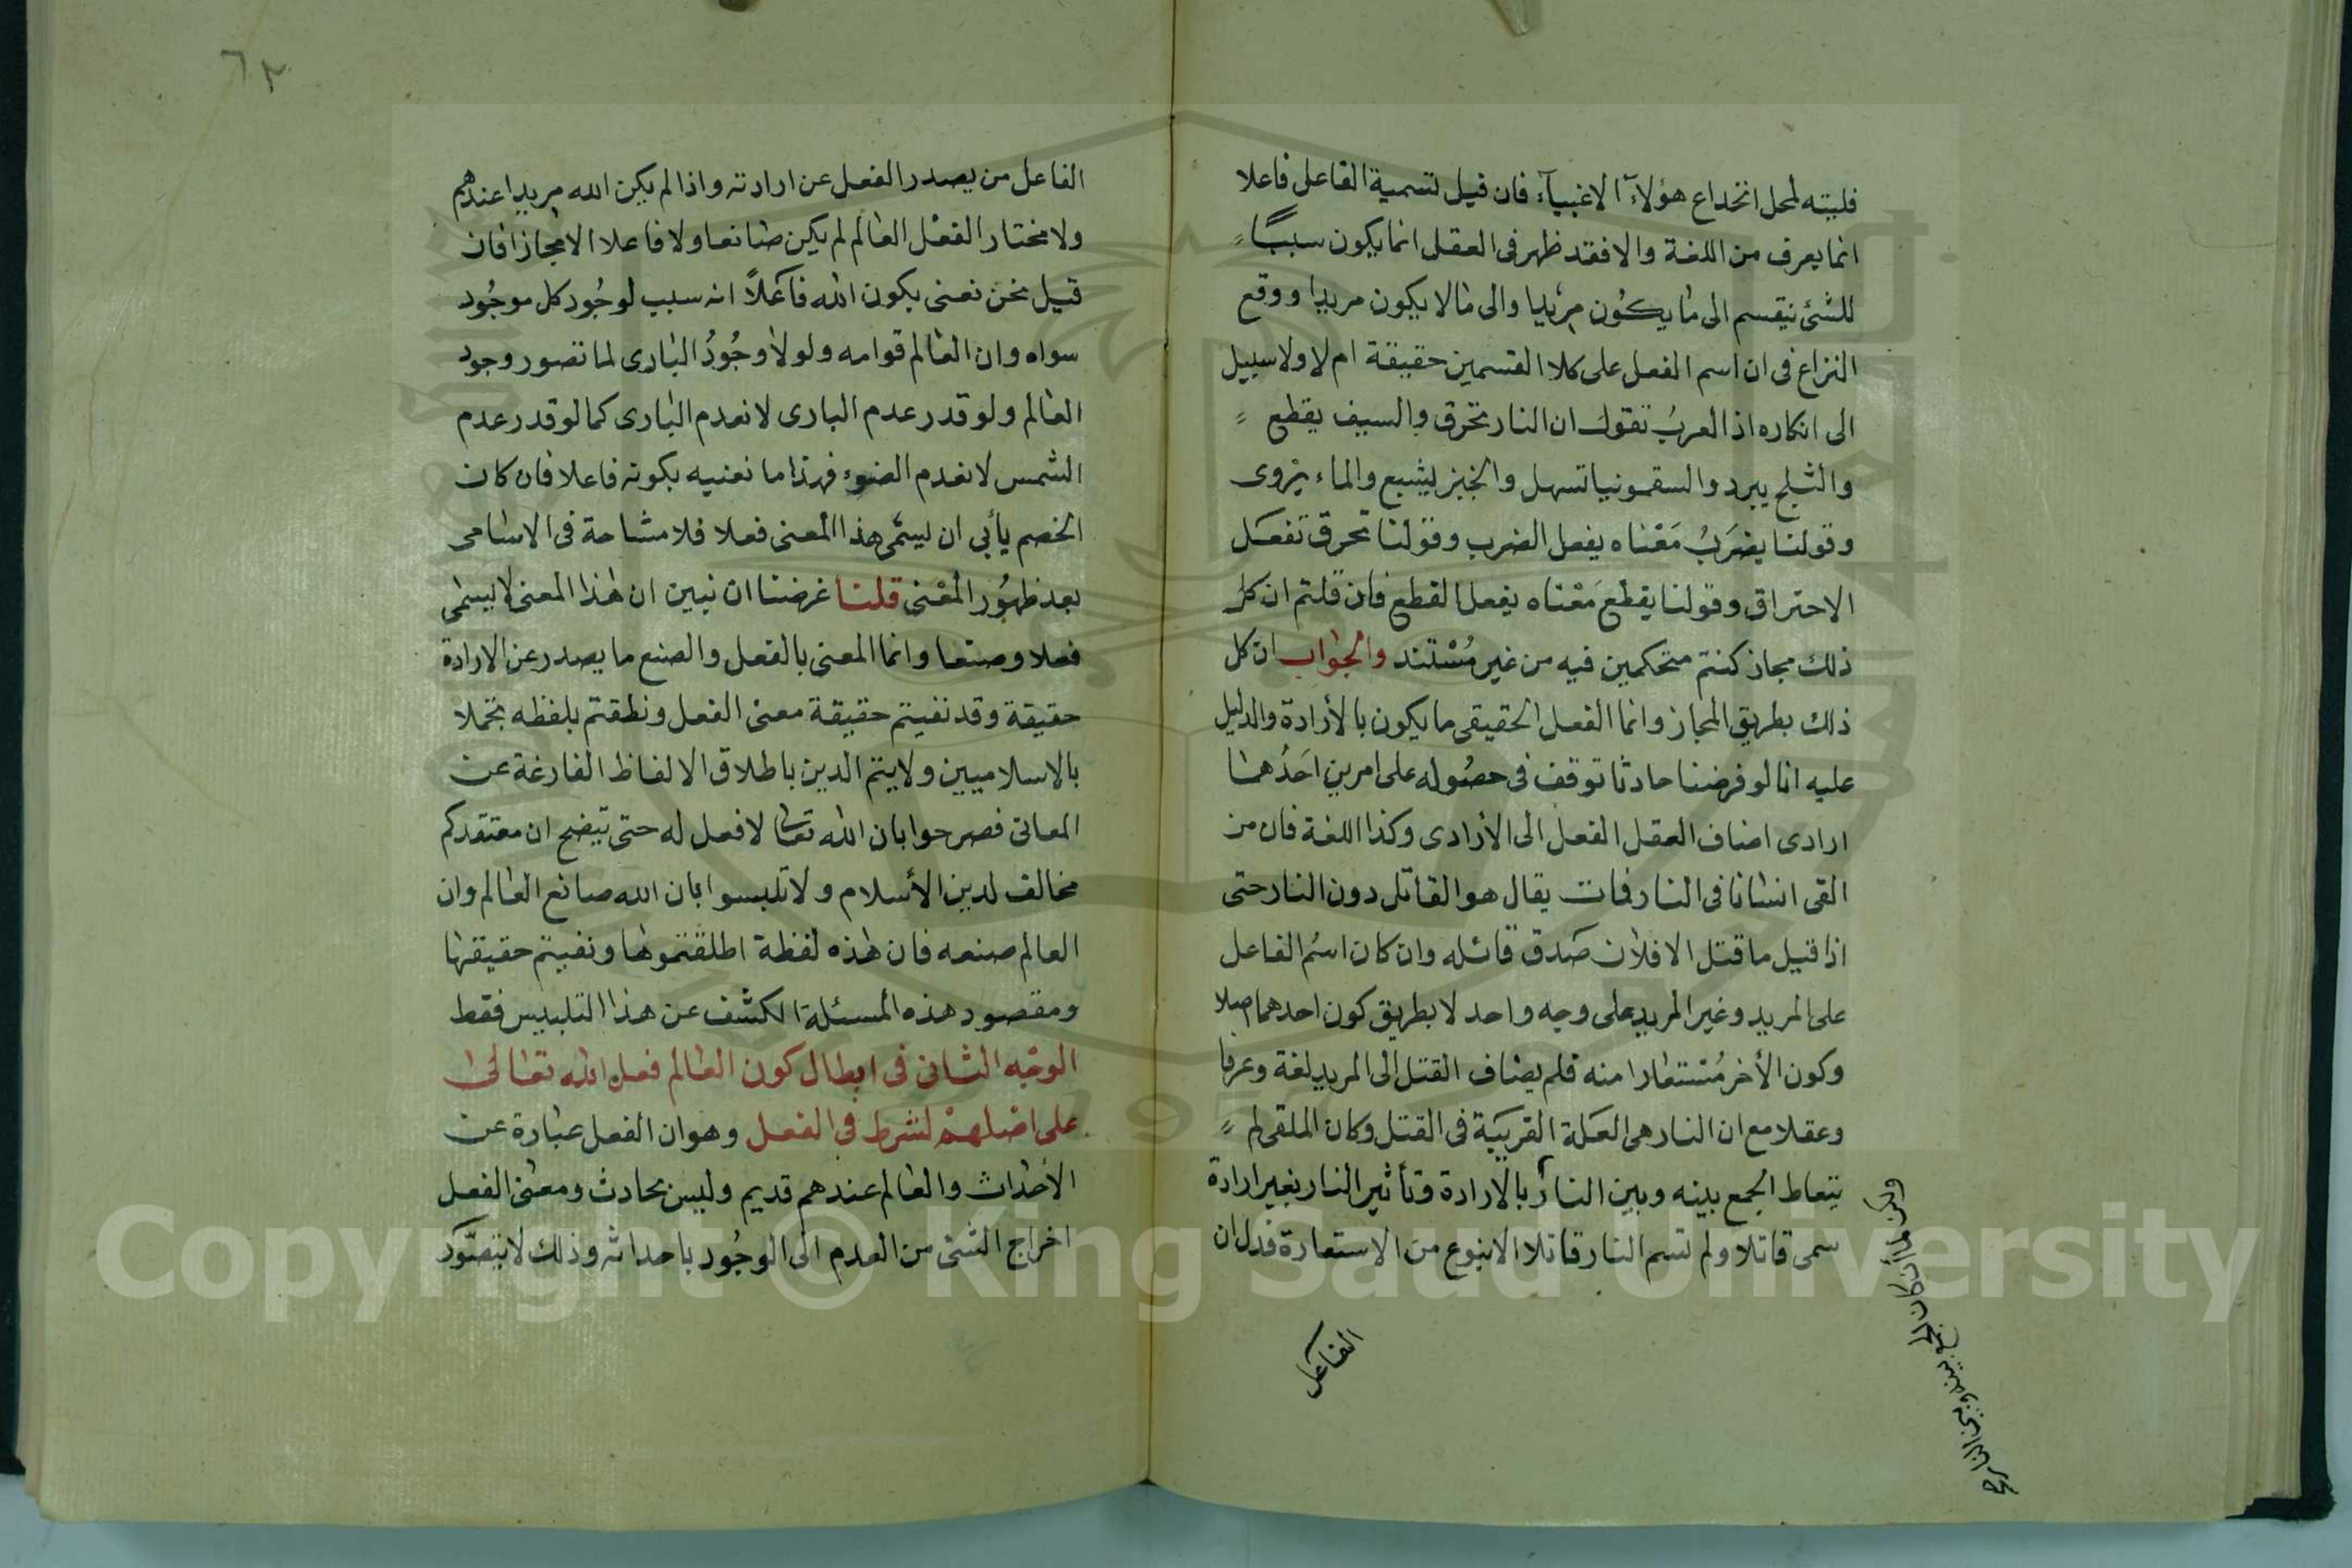 فليتنبه لمحل انخداع هؤلآء الاغبيآء فان قيل تسمية الفاعل فاعلا
انما يعرف من اللغة والا فقد ظهر فى العقل انما يكون سببًا
للشئ ينقسم الى ما يكون مريدا والى ما لا يكون مريدا ووقع
النزاع فى ان اسم الفعل على كلا القسمين حقيقة ام لا ولا سبيل
الى انكاره اذ العرب تقول ان النار تحرق والسيف يقطع
والثلج يبرد والسقمونيا تسهل والخبز يشبع والماء يروى
وقولنا يضرب معناه يفعل الضرب وقولنا تحرق تفعل
الاحتراق وقولنا يقطع معناه يفعل القطع فان قلتم ان كل
ذلك مجاز كنتم متحكمين فيه من غير مستند والجواب ان كل
ذلك بطريق المجاز وانما الفعل الحقيقى ما يكون بالأرادة والدليل
عليه انا لو فرضنا حادثا توقف فى حصوله على امرين احدهما
ارادى اضاف العقل الفعل الى الأرادى وكذا اللغة فان من
القى انسانا فى النار فمات يقال هو القاتل دون النار حتى
اذا قيل ما قتل الا فلان صدق قائله وان كان اسم الفاعل
على المريد وغير المريد على وجه واحد لا بطريق كون احدهما اصلا
وكون الأخر مستعارا منه فلم يضاف القتل الى المريد لغة وعرفا
وعقلا مع ان النار هى العلة القريبة فى القتل وكان الملقى لم
يتعاط الجمع بينه وبين النار بالارادة وتأثير النار بغير ارادة
سمى قاتلا ولم تسم النار قاتلا الا بنوع من الاستعارة فدل ان
ولكن لما ان كان الجمع بينه وبين النار
الفاعل
٦٢
الفاعل من يصدر الفعل عن ارادته واذا لم يكن الله مريدا عندهم
ولا مختار الفعل العالم لم يكن صانعا ولا فاعلا الا مجازا فان
قيل نحن نعنى بكون الله فاعلاً انه سبب لوجود كل موجود
سواه وان العالم قوامه ولولا وجود البارى لما تصور وجود
العالم ولو قدر عدم البارى لانعدم البارى كما لو قدر عدم
الشمس لانعدم الضوء فهذا ما نعنيه بكونه فاعلا فان كان
الخصم يأبى ان ليسمى هذا المعنى فعلا فلا مشاحة فى الاسامى
بعد ظهور المعنى قلنا غرضنا ان نبين ان هذا المعنى لا يسمى
فعلا وصنعا وانما المعنى بالفعل والصنع ما يصدر عن الارادة
حقيقة وقد نفيتم حقيقة معنى الفعل ونطقتم بلفظه تجملا
بالاسلاميين ولا يتم الدين باطلاق الالفاظ الفارغة عن
المعانى فصرحوا بان الله تعالى لا فعل له حتى يتضح ان معتقدكم
مخالف لدين الأسلام ولا تلبسوا بان الله صانع العالم وان
العالم صنعه فان هذه لفظة اطلقتموها ونفيتم حقيقتها
ومقصود هذه المسئلة الكشف عن هذا التلبيس فقط
الوجه الثانى فى ابطال كون العالم فعل الله تعالى
على اصلهم لشرط فى الفعل وهو ان الفعل عبارة عن
الأحداث والعالم عندهم قديم وليس بحادث ومعنى الفعل
اخراج الشئ من العدم الى الوجود باحداثه وذلك لا يتصور
Copyright © King Saud University